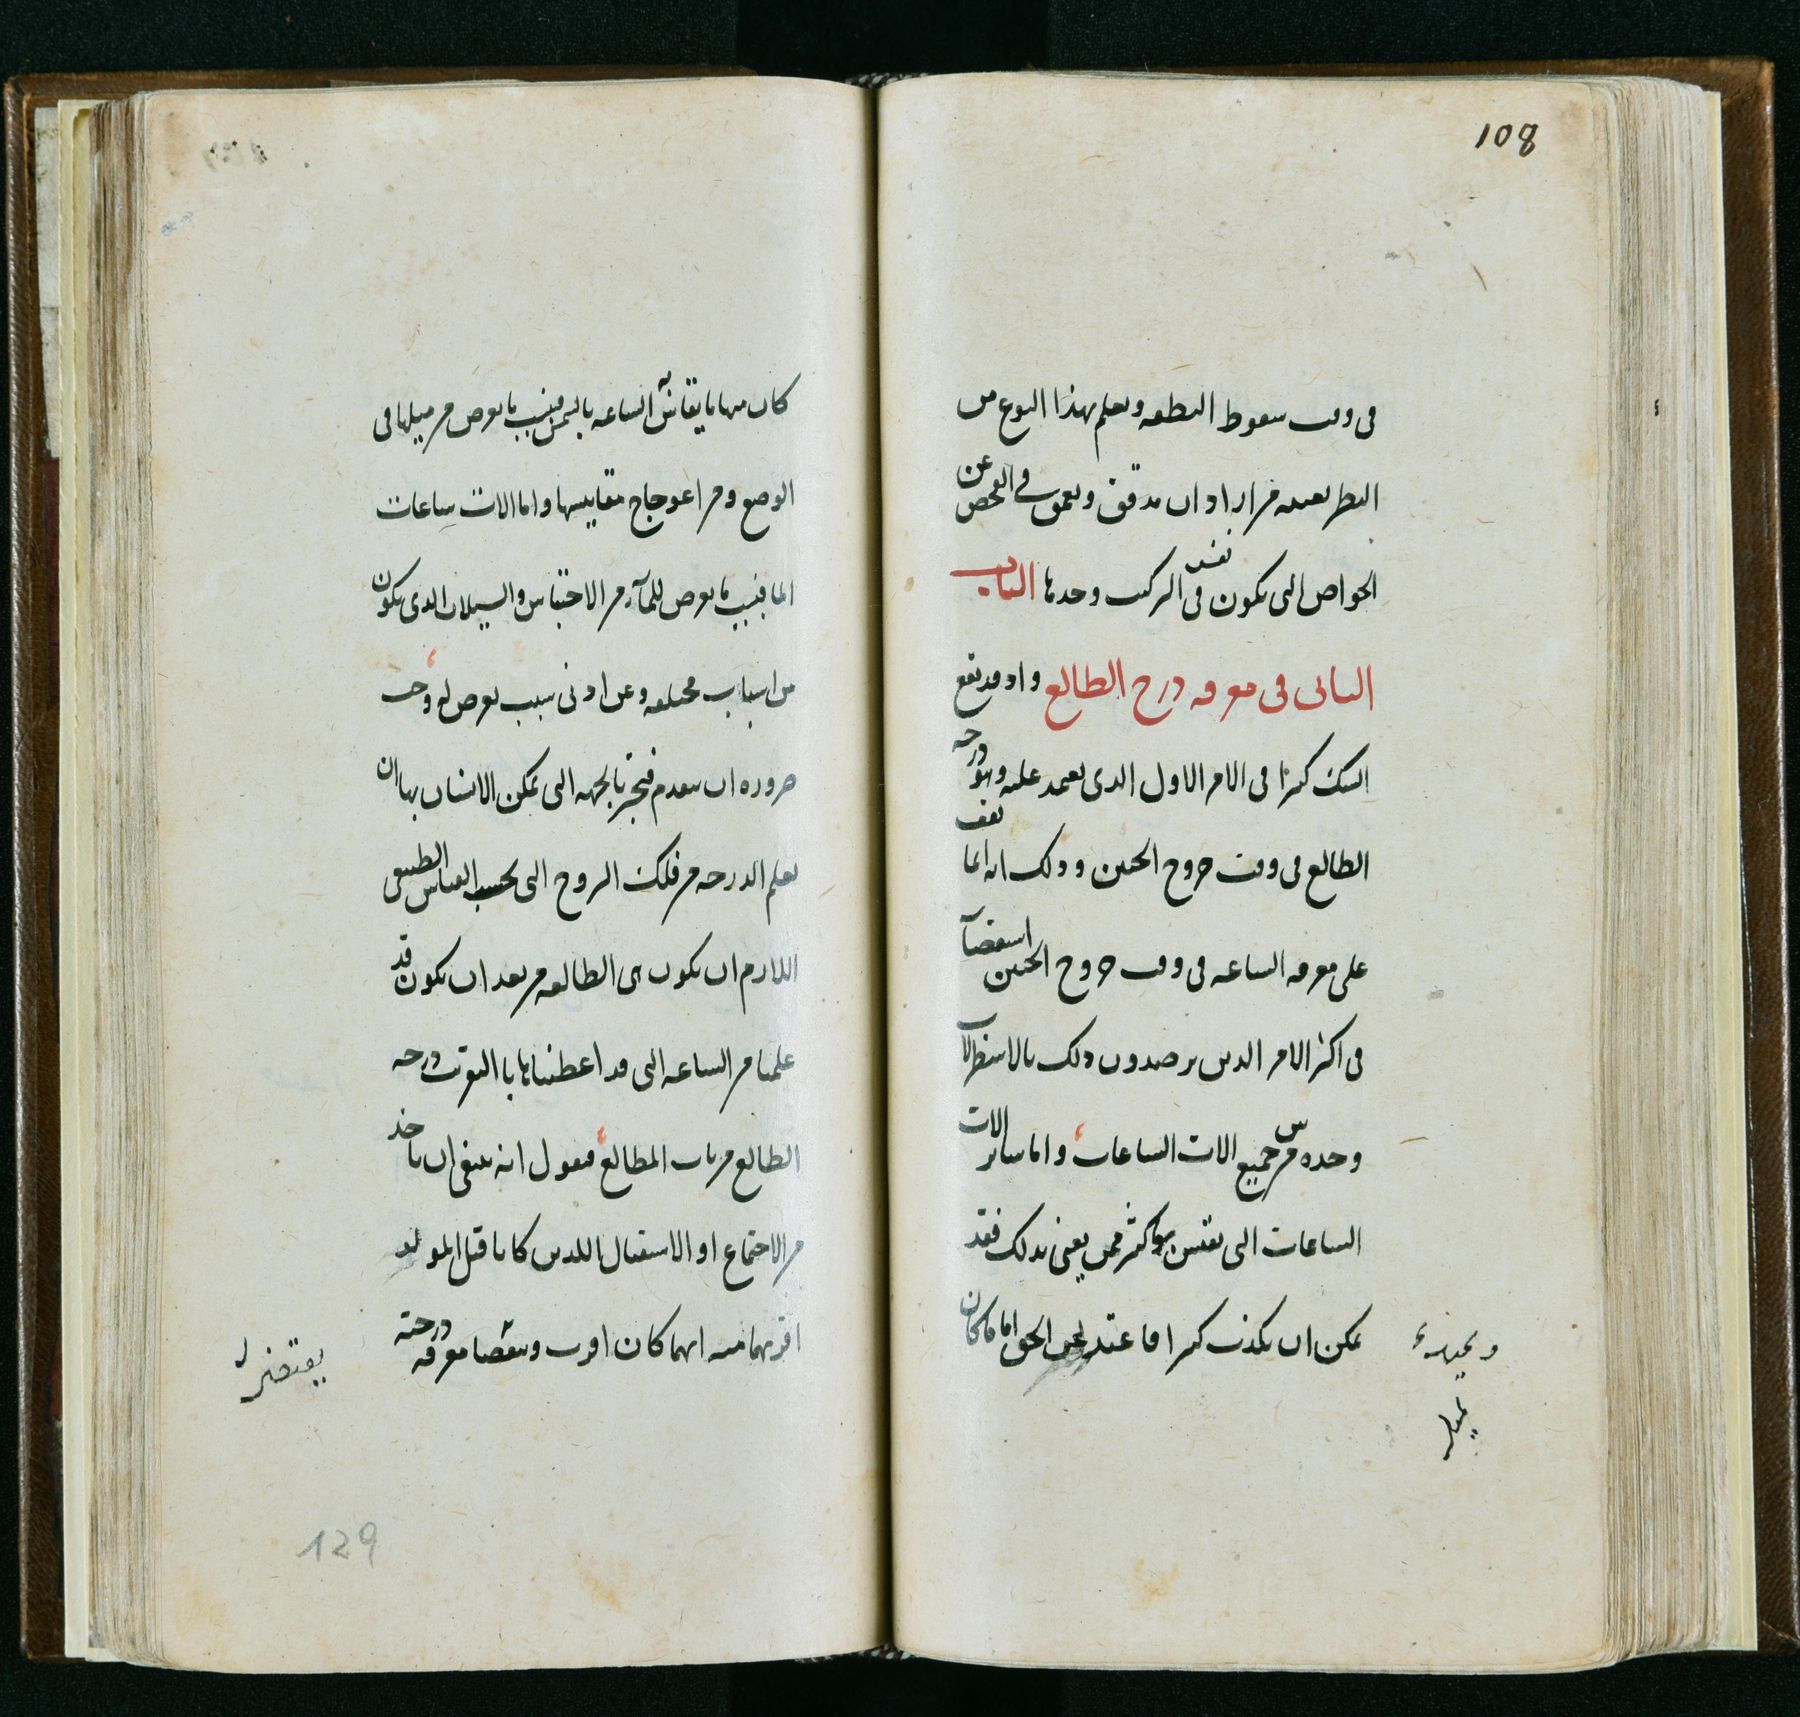 108
فى وقت سقوط النطفه ويعلم بهذا النوع من
النظر بعينه من اراد ان يدقق ويعمق فى الفحص عن
الخواص التى تكون فى نفس التركيب وحدها الباب
الثانى فى معرفه درج الطالع واذ قد يقع
الشك كثيرا فى الامر الاول الذى يعمد عليه وهو درجه
الطالع فى وقت خروج الجنين وذلك انه انما يقف
على معرفه الساعه فى وقت خروج الجنين استقصآ
فى اكثر الامر الذين يرصدون ذلك بالاسطرلاب
وحده من جميع الات الساعات واما ساير الات
الساعات التى يقتبس بها اكثر ممن يعنى بذلك فقد
يمكن ان يكذب كثيرا فى الحق اما ما كان
كان منها ما يقاس به الساعه بالشمس فبسبب ما يعرض من ميلها فى
الوضع ومن اعوجاج مقاييسها واما الات ساعات
الما فبسبب ما يعرض للمآء من الاحتباس والسيلان الذى يكون
من اسباب مختلفه وعن ادنى سبب يعرض له وجب
ضروره ان يتقدم فنخبر بالجهه التى يمكن الانسان بها ان
يعلم الدرجه من فلك البروج التى بحسب القياس الطبيعى
اللازم ان يكون هى الطالعه من بعد ان يكون قد
علمنا من الساعه التى قد اعطيناها بالتقريب درجه
الطالع من باب المطالع فنقول انه ينبغى ان ناخذ
من الاجتماع او الاستقبال اللذين كانا قبل المولد
اقربهما منه ايهما كان اقرب ونتقصا معرفه درجته
129